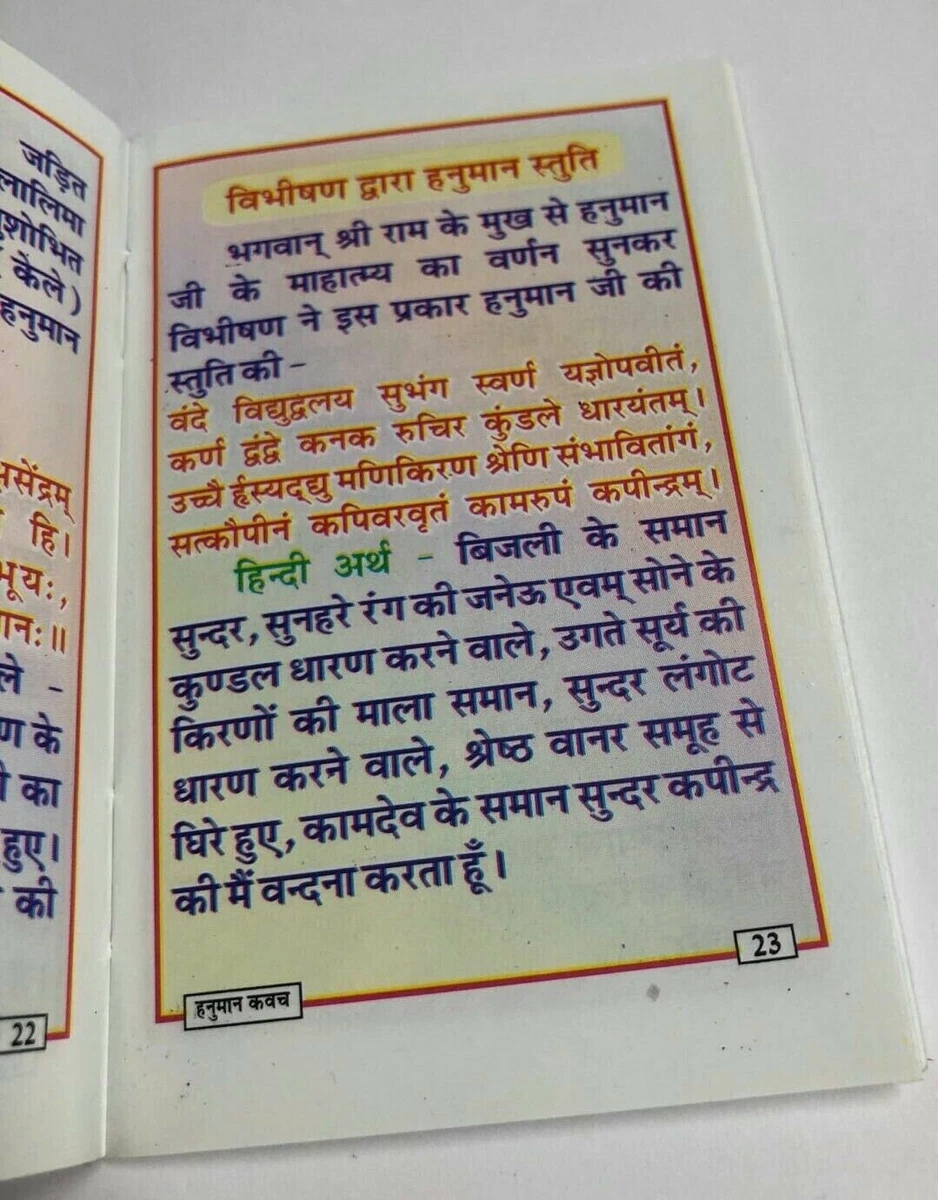 जड़ित
लालिमा
शोभित
केले)
हनुमान
सेंद्रम्
हि।
भूयः,
नः॥
ले -
ण के
का
हुए।
की
22
विभीषण द्वारा हनुमान स्तुति
भगवान् श्री राम के मुख से हनुमान
जी के माहात्म्य का वर्णन सुनकर
विभीषण ने इस प्रकार हनुमान जी की
स्तुति की -
वंदे विद्युद्वलय सुभंग स्वर्ण यज्ञोपवीतं,
कर्ण द्वंद्वे कनक रुचिर कुंडले धारयंतम्।
उच्चै र्हस्यद्द्यु मणिकिरण श्रेणि संभावितांगं,
सत्कौपीनं कपिवरवृतं कामरुपं कपीन्द्रम्।
हिन्दी अर्थ - बिजली के समान
सुन्दर, सुनहरे रंग की जनेऊ एवम् सोने के
कुण्डल धारण करने वाले, उगते सूर्य की
किरणों की माला समान, सुन्दर लंगोट
धारण करने वाले, श्रेष्ठ वानर समूह से
घिरे हुए, कामदेव के समान सुन्दर कपीन्द्र
की मैं वन्दना करता हूँ।
23
हनुमान कवच